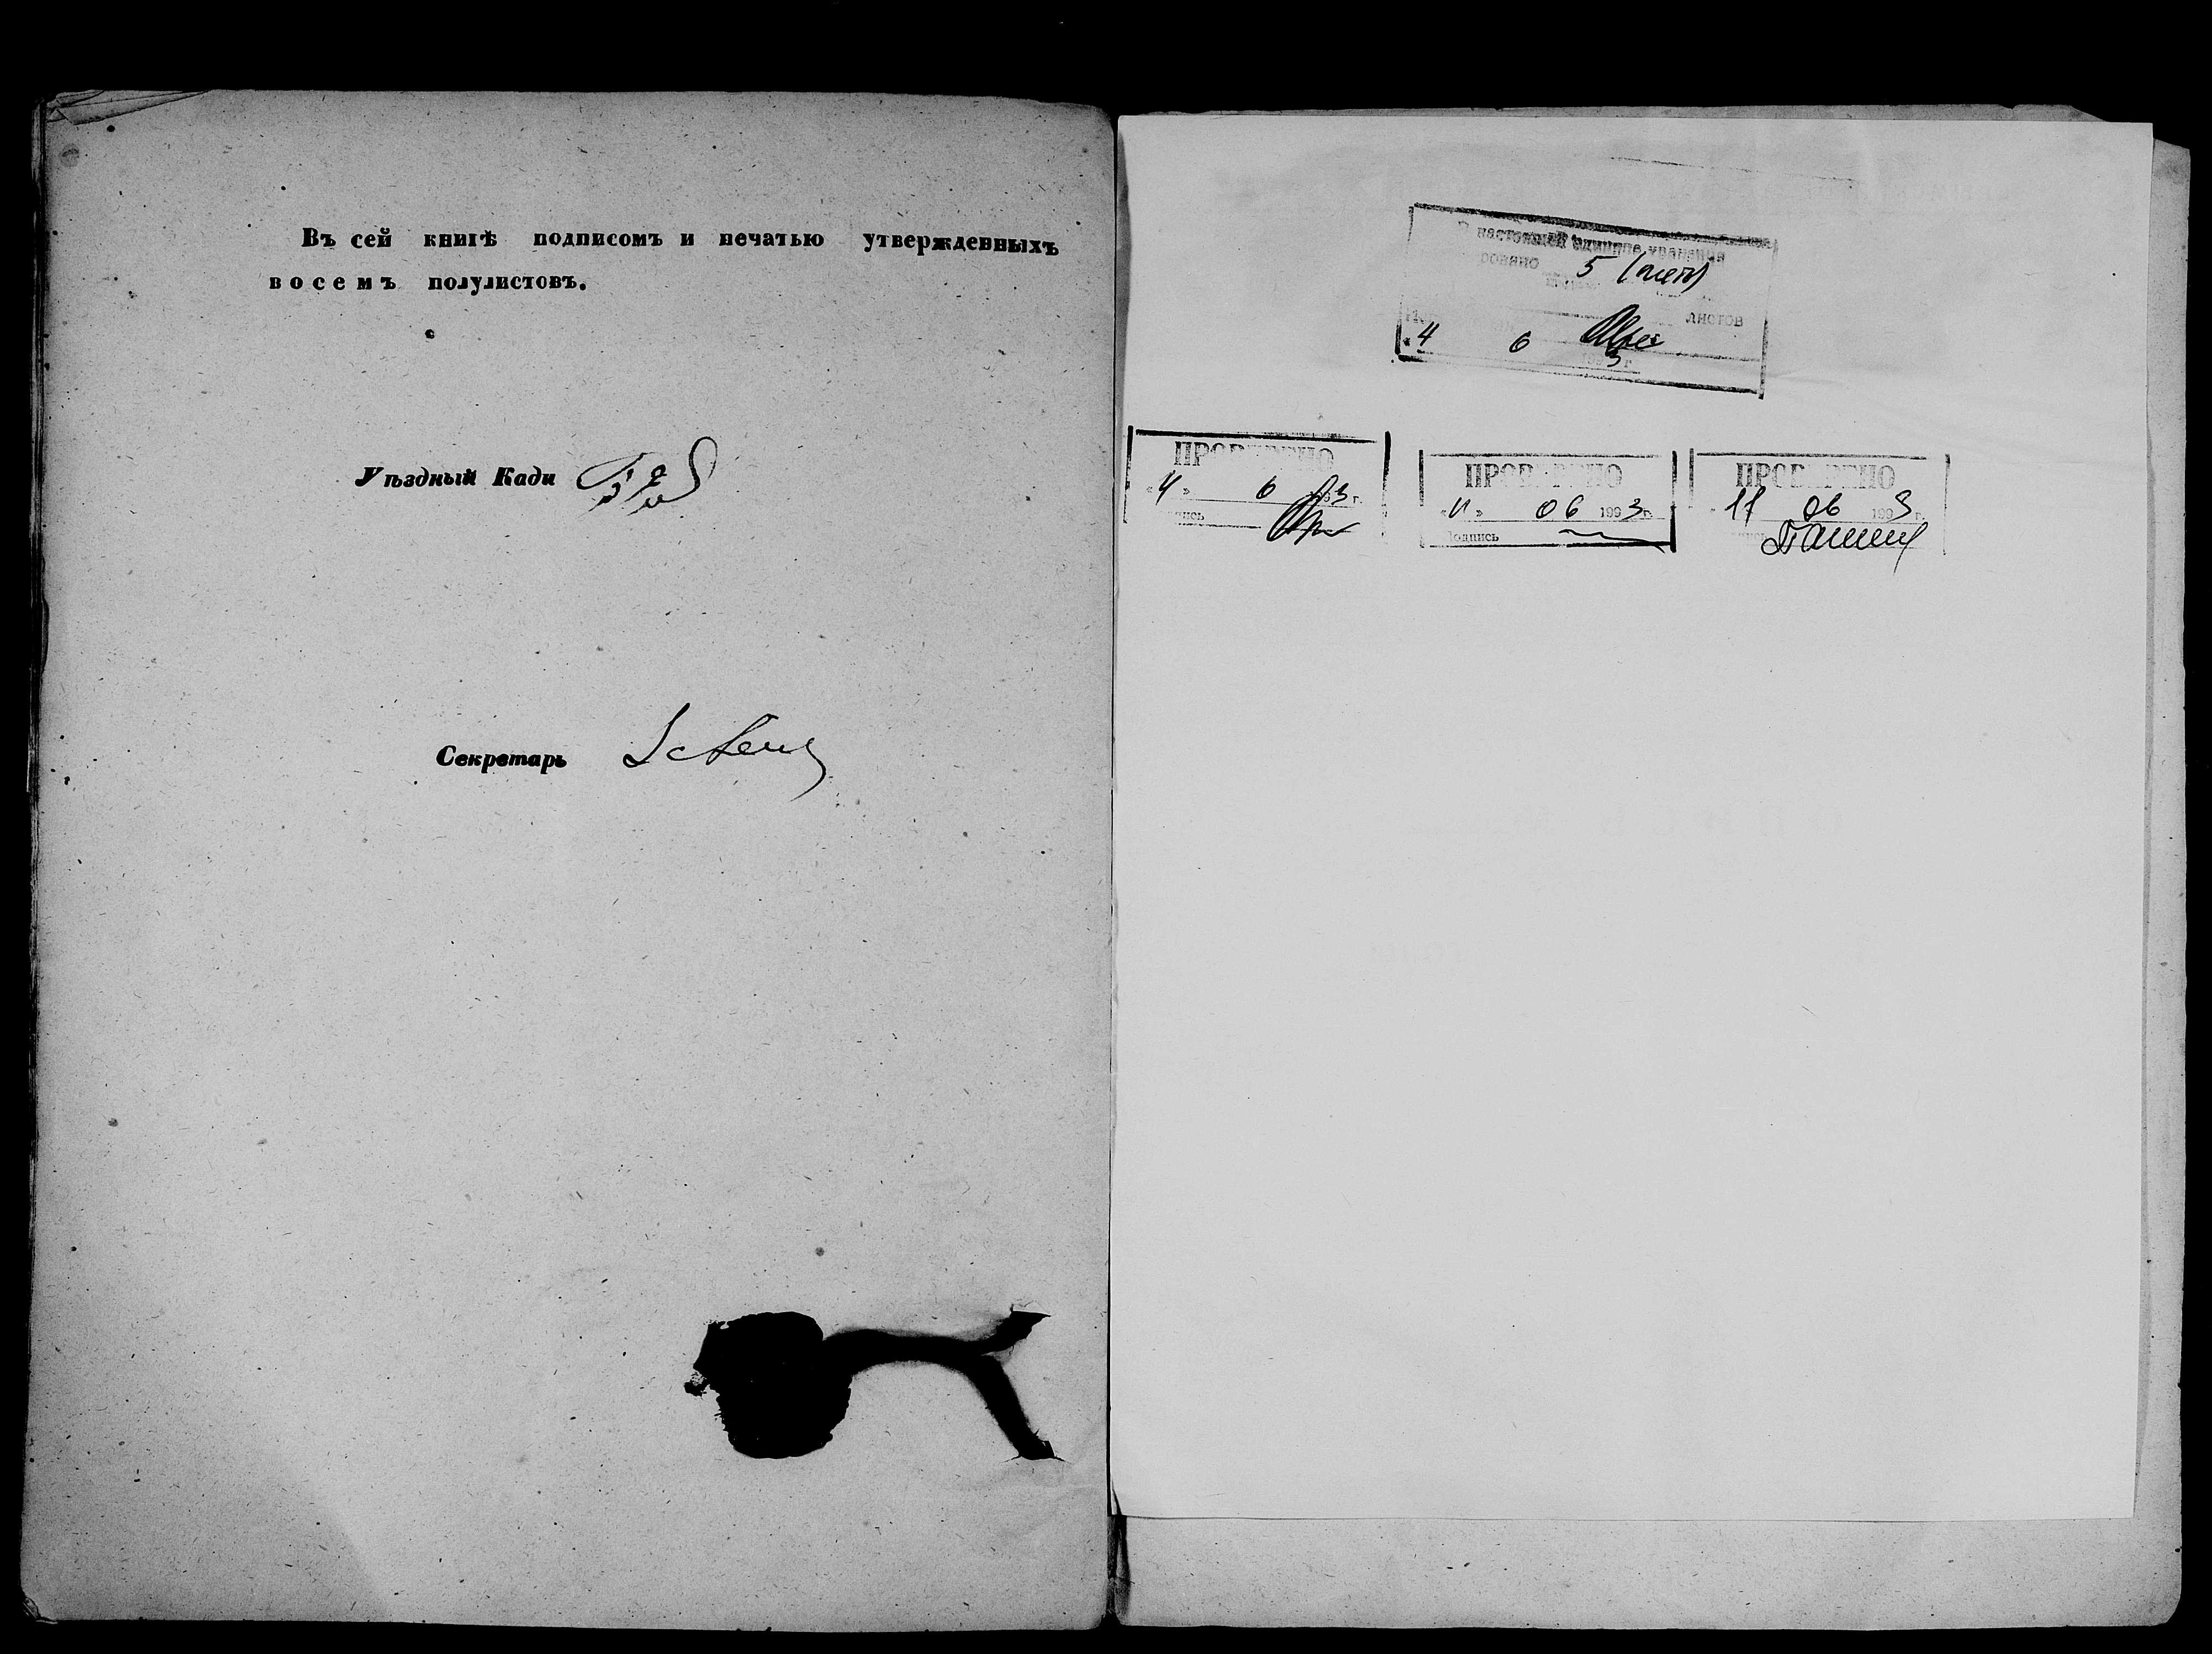 Въ сей книгѣ подписомъ и печатью утвержденныхъ
восемъ полулистовъ.
Уѣздный Кади
Секретарь
В настоящей единице хранения
ровано 5 (пять)
листов
4 6 3 г.
ПРОВЕРЕНО
«4» 6 1993 г.
пись
ПРОВЕРЕНО
«11» 06 1993 г.
Подпись
ПРОВЕРЕНО
11 06 1993 г.